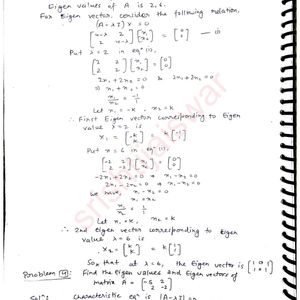 Eigen values of A is 2,6.
For Eigen vector, consider the following relation,
(A-λI) X = 0
[4-λ 2; 2 4-λ] [x₁; x₂] = [0; 0] — (i)
Put λ = 2 in eqⁿ (i),
[2 2; 2 2] [x₁; x₂] = [0; 0]
2x₁ + 2x₂ = 0 & 2x₁ + 2x₂ = 0
⇒ x₁ + x₂ = 0
x₁/x₂ = -1/1
Let x₁ = -k, x₂ = k
∴ First Eigen vector corresponding to Eigen
value λ=2 is
X₁ = [-k; k] = k [-1; 1]
Put x = 6 in eqⁿ (i),
[-2 2; 2 -2] [x₁; x₂] = [0; 0]
-2x₁ + 2x₂ = 0 ⇒ x₁ - x₂ = 0
2x₁ - 2x₂ = 0 ⇒ x₁ - x₂ = 0
We have, x₁ - x₂ = 0
x₁ = x₂
x₁/x₂ = 1/1
Let x₁ = k, x₂ = k
∴ 2nd Eigen vector corresponding to Eigen
value λ = 6 is
X₂ = [k; k] = k [1; 1]
So that at λ=6, the Eigen vector is
Problem Find the Eigen values and Eigen vectors of
matrix A = [-5 2; 2 -2]
Solⁿ: Characteristic eqⁿ is |A-λI| =